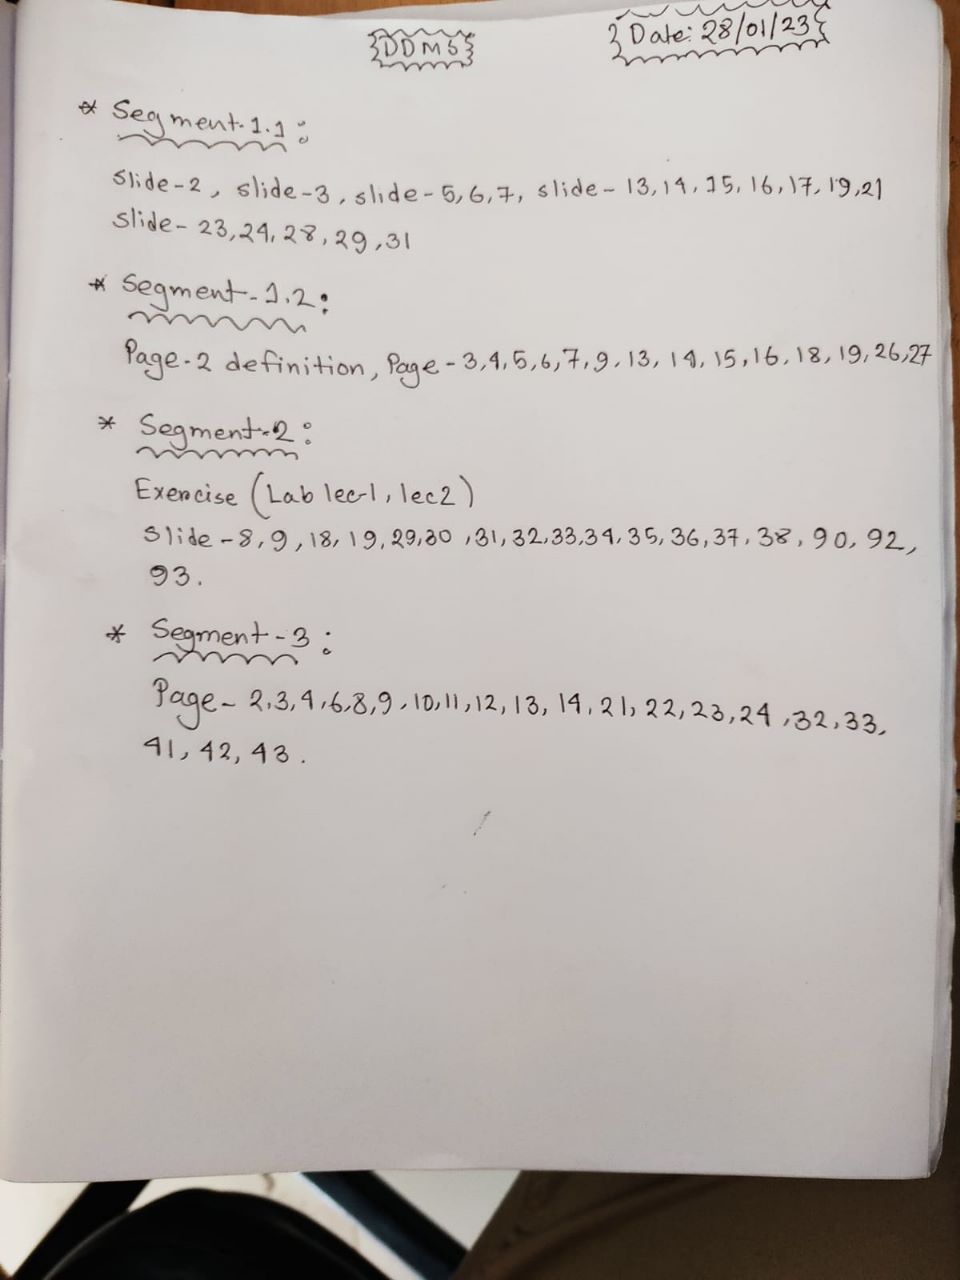 DDMS
Date: 28/01/23
* Segment-1.1:
Slide-2, slide-3, slide-5,6,7, slide-13,14,15,16,17,19,21
Slide-23,24,28,29,31
* Segment-1.2:
Page-2 definition, Page-3,4,5,6,7,9,13,14,15,16,18,19,26,27
* Segment-2:
Exercise (Lab lec-1, lec2)
Slide-8,9,18,19,29,30,31,32,33,34,35,36,37,38,90,92,
93.
* Segment-3:
Page-2,3,4,6,8,9,10,11,12,13,14,21,22,23,24,32,33,
41,42,43.